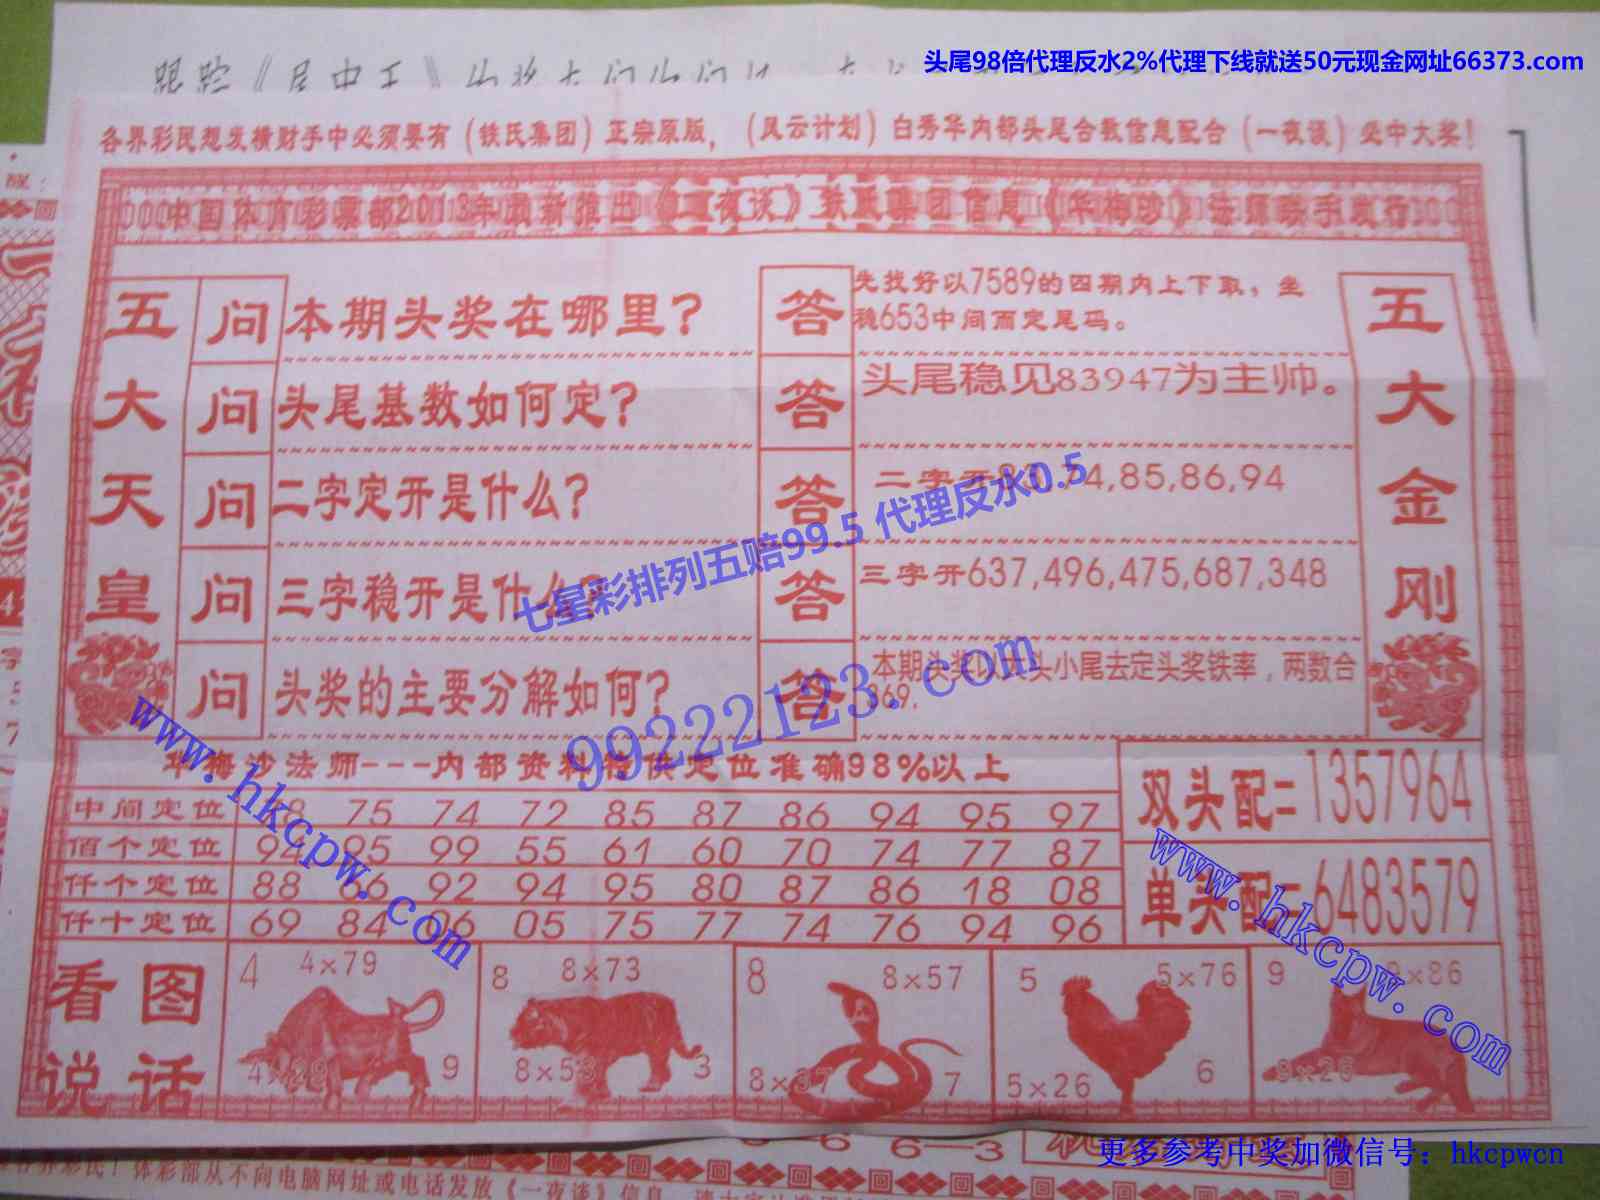 头尾98倍代理反水2%代理下线就送50元现金网址66373.com
跟踪《
各界彩民想发横财手中必须要有（铁氏集团）正宗原版，（风云计划）白秀华内部头尾合数信息配合（一夜谈）必中大奖！
中国体育彩票部2013年最新推出《一夜谈》铁氏集团信息《华梅沙》法师联手发行
五大天皇
问 本期头奖在哪里？
答 先找好以7589的四期内上下取，坐
稳653中间而定尾码。
问 头尾基数如何定？
答 头尾稳见83947为主帅。
问 二字定开是什么？
答 二字开83,74,85,86,94
问 三字稳开是什么？
答 三字开637,496,475,687,348
问 头奖的主要分解如何？
答 本期头奖以大头小尾去定头奖铁率，两数合
369.
五大金刚
七星彩排列五赔99.5 代理反水0.5
99222123.com
www.hkcpw.com
华梅沙法师---内部资料提供定位准确98%以上
中间定位 78 75 74 72 85 87 86 94 95 97
佰个定位 94 95 99 55 61 60 70 74 77 87
仟个定位 88 66 92 94 95 80 87 86 18 08
仟十定位 69 84 06 05 75 77 74 76 94 96
双头配=1357964
单头配=6483579
www.hkcpw.com
看图说话
4 4×79
4×29 9
8 8×73
8×53 3
8 8×57
8×37 7
5 5×76
5×26 6
9 ×86
×26
6 6—3
更多参考中奖加微信号：hkcpwcn
各界彩民！体彩部从不向电脑网址或电话发放《一夜谈》信息